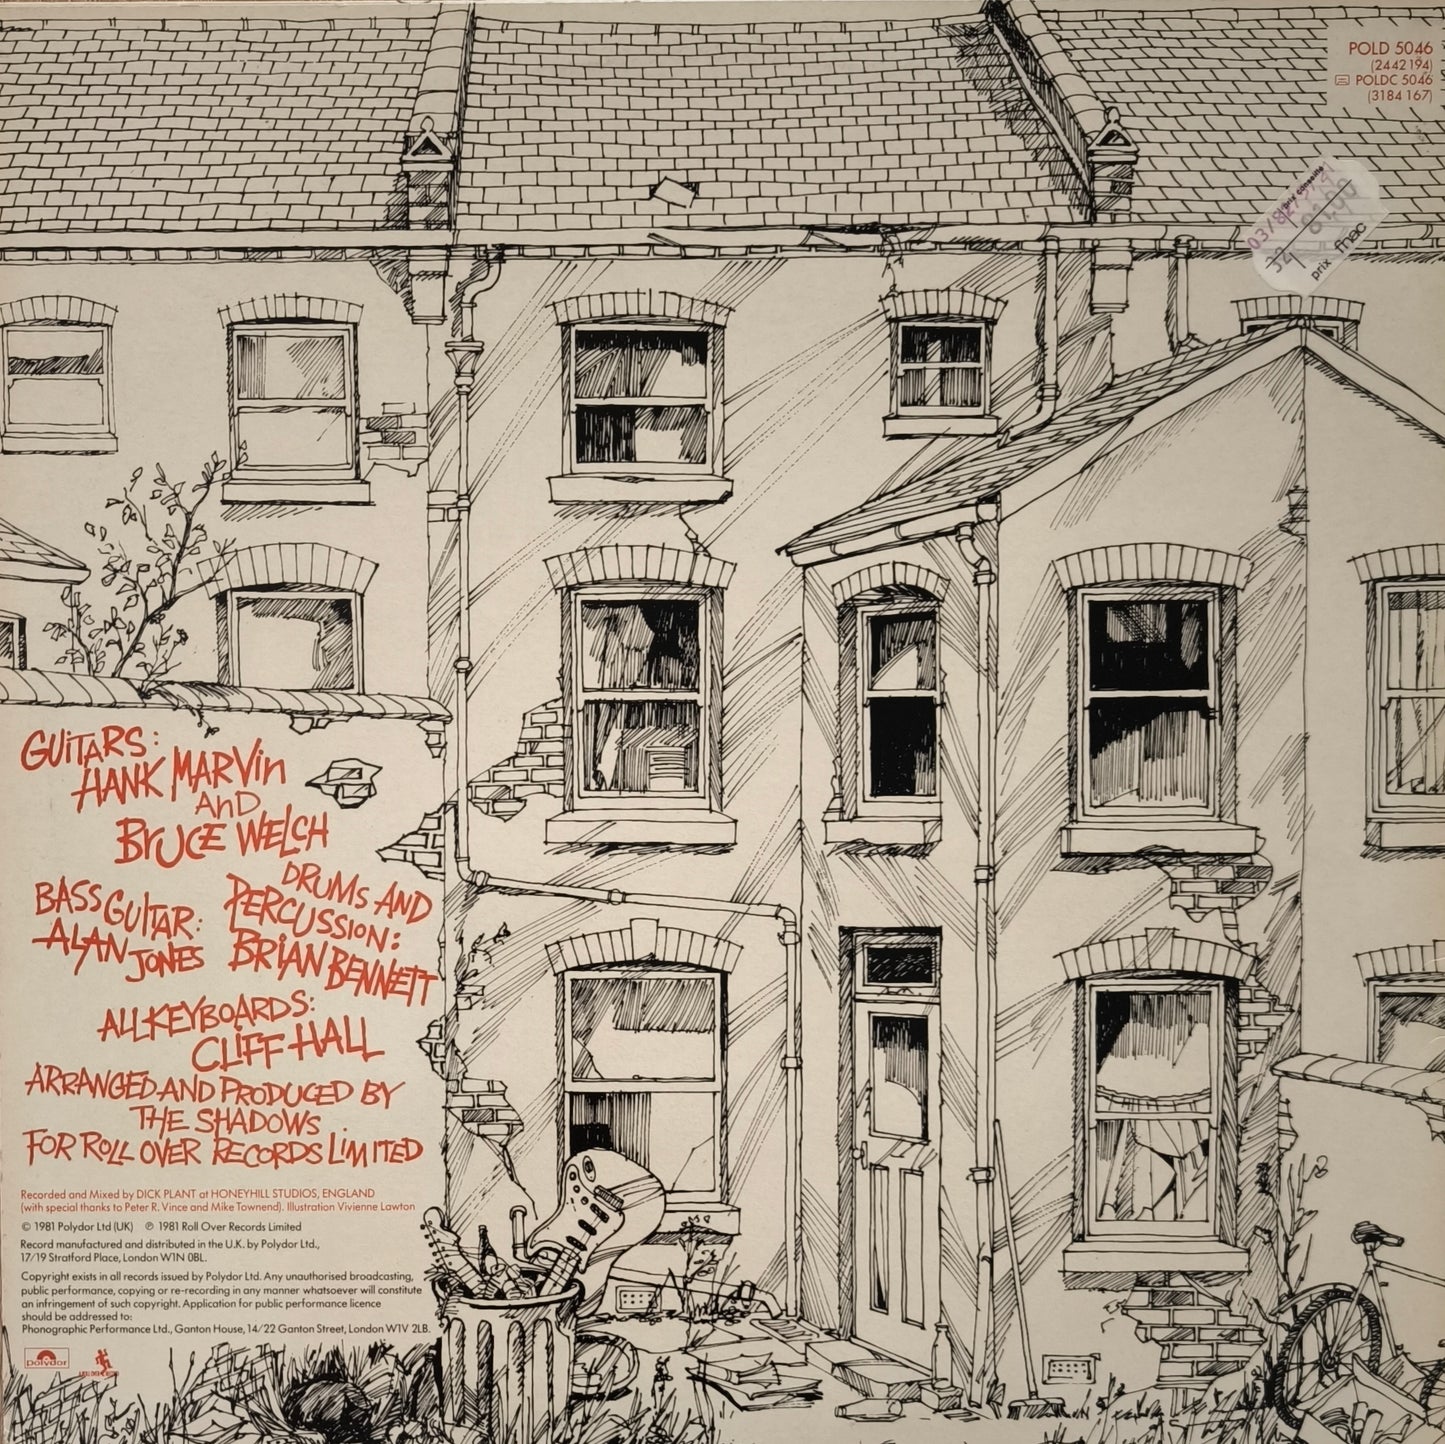 POLD 5046
(2442 194)
POLDC 5046
(3184 167)
prix fnac
GUITARS:
HANK MARVIN
AND
BRUCE WELCH
BASS GUITAR:
ALAN
JONES
DRUMS AND
PERCUSSION:
BRIAN BENNETT
ALL KEYBOARDS:
CLIFF HALL
ARRANGED AND PRODUCED BY
THE SHADOWS
FOR ROLL OVER RECORDS LIMITED
Recorded and Mixed by DICK PLANT at HONEYHILL STUDIOS, ENGLAND
(with special thanks to Peter R. Vince and Mike Townend). Illustration Vivienne Lawton
© 1981 Polydor Ltd (UK) ℗ 1981 Roll Over Records Limited
Record manufactured and distributed in the U.K. by Polydor Ltd.,
17/19 Stratford Place, London W1N 0BL.
Copyright exists in all records issued by Polydor Ltd. Any unauthorised broadcasting,
public performance, copying or re-recording in any manner whatsoever will constitute
an infringement of such copyright. Application for public performance licence
should be addressed to:
Phonographic Performance Ltd., Ganton House, 14/22 Ganton Street, London W1V 2LB.
polydor